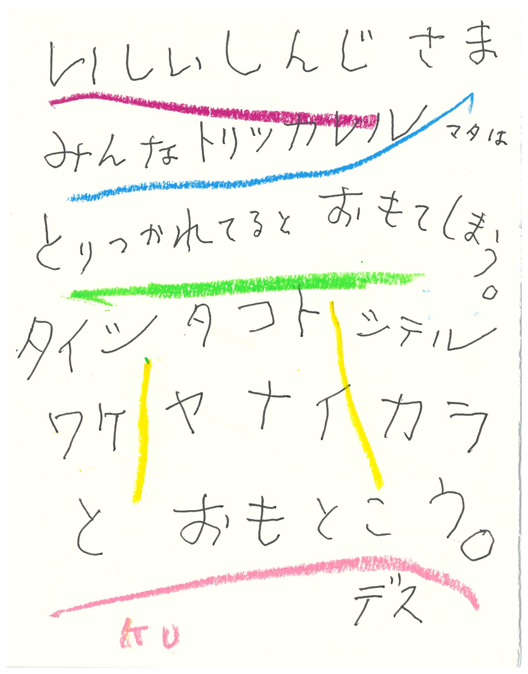 いしいしんじ さま
みんなトリツカレル マタは
とりつかれてるとおもてしまう。
タイシタコトシテル
ワケヤナイカラ
とおもとこう。
デス